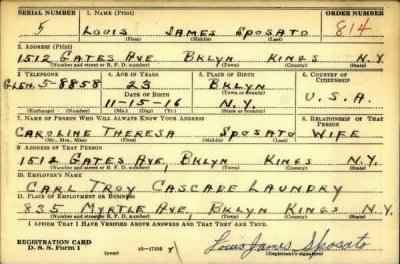 SERIAL NUMBER 1. NAME (Print) ORDER NUMBER
5 LOUIS JAMES SPOSATO 814
(First) (Middle) (Last)
2. ADDRESS (Print)
1512 GATES AVE. BKLYN KINGS N.Y.
(Number and street or R. F. D. number) (Town) (County) (State)
3. TELEPHONE 4. AGE IN YEARS 5. PLACE OF BIRTH 6. COUNTRY OF CITIZENSHIP
GLEN. 5-8858 23 BKLYN
DATE OF BIRTH (Town or county)
11-15-16 N.Y. U.S.A.
(Exchange) (Number) (Mo.) (Day) (Yr.) (State or country)
7. NAME OF PERSON WHO WILL ALWAYS KNOW YOUR ADDRESS 8. RELATIONSHIP OF THAT PERSON
CAROLINE THERESA SPOSATO WIFE
(Mr., Mrs., Miss) (First) (Middle) (Last)
9. ADDRESS OF THAT PERSON
1512 GATES AVE, BKLYN KINGS N.Y.
(Number and street or R. F. D. number) (Town) (County) (State)
10. EMPLOYER'S NAME
CARL TROY CASCADE LAUNDRY
11. PLACE OF EMPLOYMENT OR BUSINESS
835 MYRTLE AVE, BKLYN KINGS N.Y.
(Number and street or R. F. D. number) (Town) (County) (State)
I AFFIRM THAT I HAVE VERIFIED ABOVE ANSWERS AND THAT THEY ARE TRUE.
REGISTRATION CARD
D. S. S. Form 1 Louis James Sposato
(Registrant's signature)